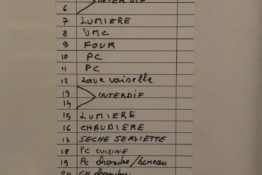 INTERDIF
6
7 LUMIERE
8 VMC
9 FOUR
10 PC
11 PC
12 Lave vaiselle
13
INTERDIF
14
15 LUMIERE
16 CHAUDIERE
17 SECHE SERVIETTE
18 PC CUISINE
19 PC chambre/bureau
20 CH chambre